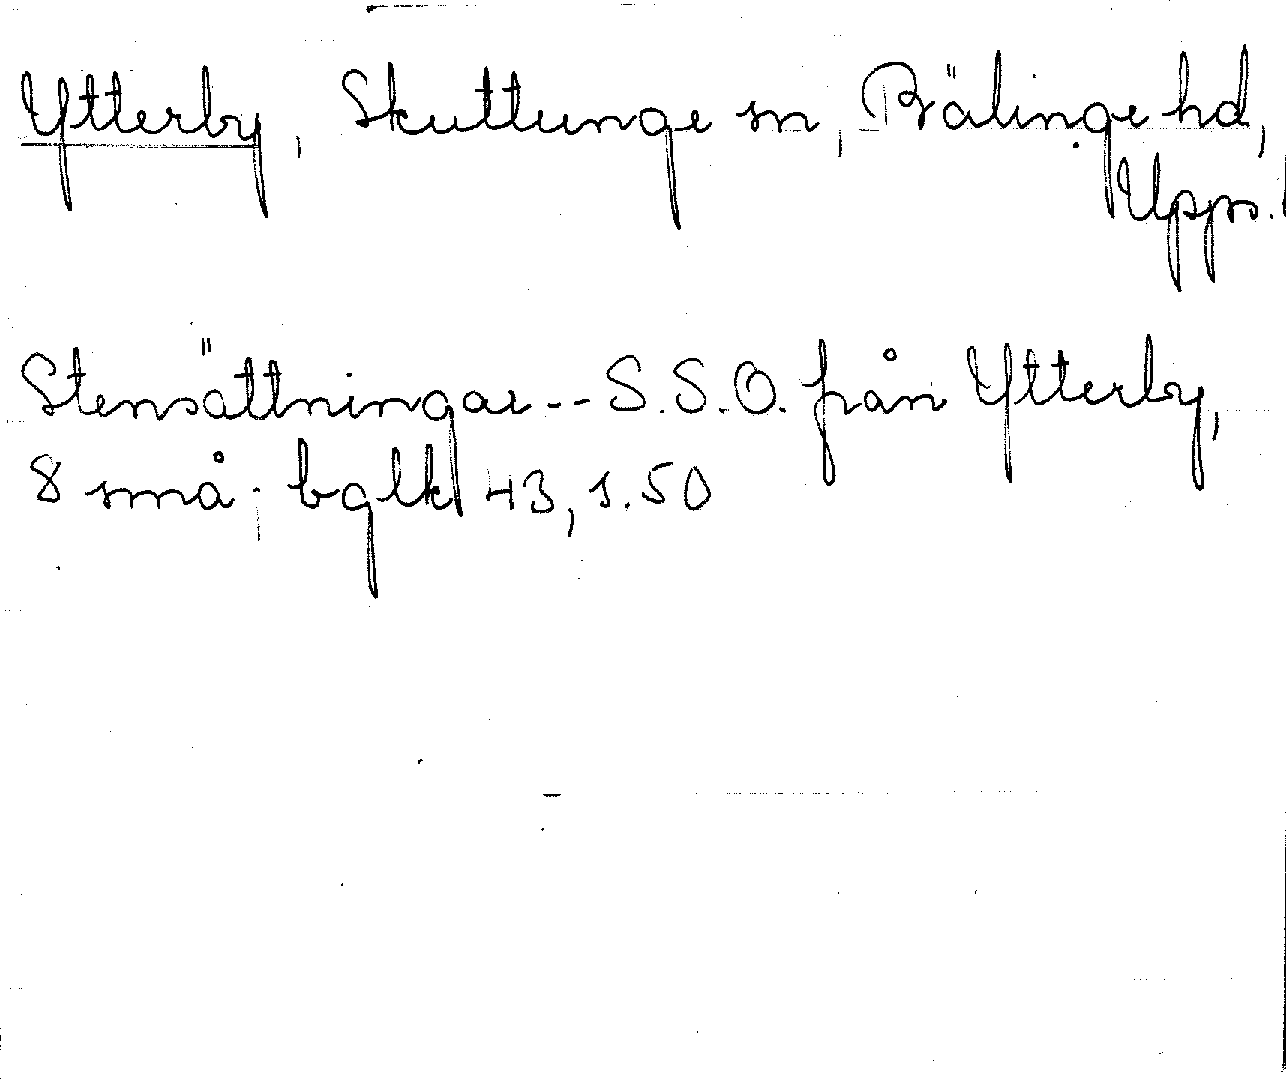 Ytterby, Skuttunge sn, Bälinge hd,
Upps.l
Stensättningar -- S.S.O. från Ytterby,
8 små; bglk 43, s.50